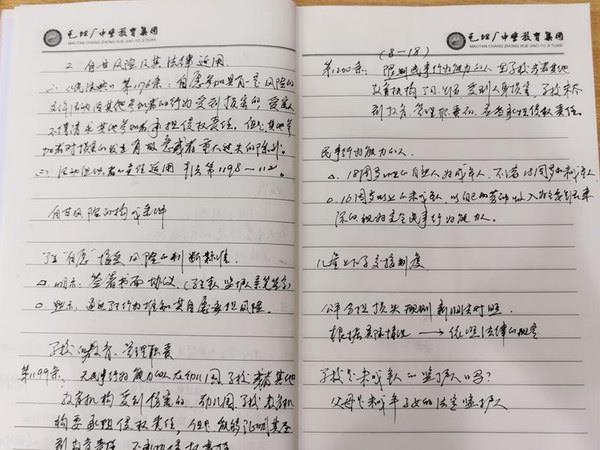 毛坦厂中学教育集团
MAOTAN CHANG ZHONG XUE JIAO YU JI TUAN
2. 自甘风险及其法律适用
《民法典》第1176条：自愿参加具有一定风险的
文体活动因其他参加者的行为受到损害的，受害人
不得请求其他参加者承担侵权责任。但是其他参
加者对损害的发生有故意或者重大过失的除外。
活动组织者的责任适用
自甘风险的构成条件
"自愿"接受风险的判断标准
明示：签署书面协议。
默示：通过行为推知其自愿承担风险。
学校的教育、管理职责
第1199条：无民事行为能力人在幼儿园、学校或者其他
教育机构受到侵害的，幼儿园、学校、教育机
构要承担侵权责任，但能够证明其尽
到教育责任，不承担侵权责任
毛坦厂中学教育集团
MAOTAN CHANG ZHONG XUE JIAO YU JI TUAN
(8-18)
第1200条：限制民事行为能力的人在学校或者其他
教育机构受到人身损害，学校未尽
到教育、管理职责的，应当承担侵权责任。
民事行为能力的人
18周岁以上的自然人为成年人，不满18周岁未成年人
16周岁以上的未成年人，以自己的劳动收入为主要生活来
源的视为完全民事行为能力人。
儿童上下学交接制度
公平分担损失规则新旧法对照
根据实际情况 → 依照法律的规定
学校是未成年人的监护人吗？
父母是未成年子女的法定监护人